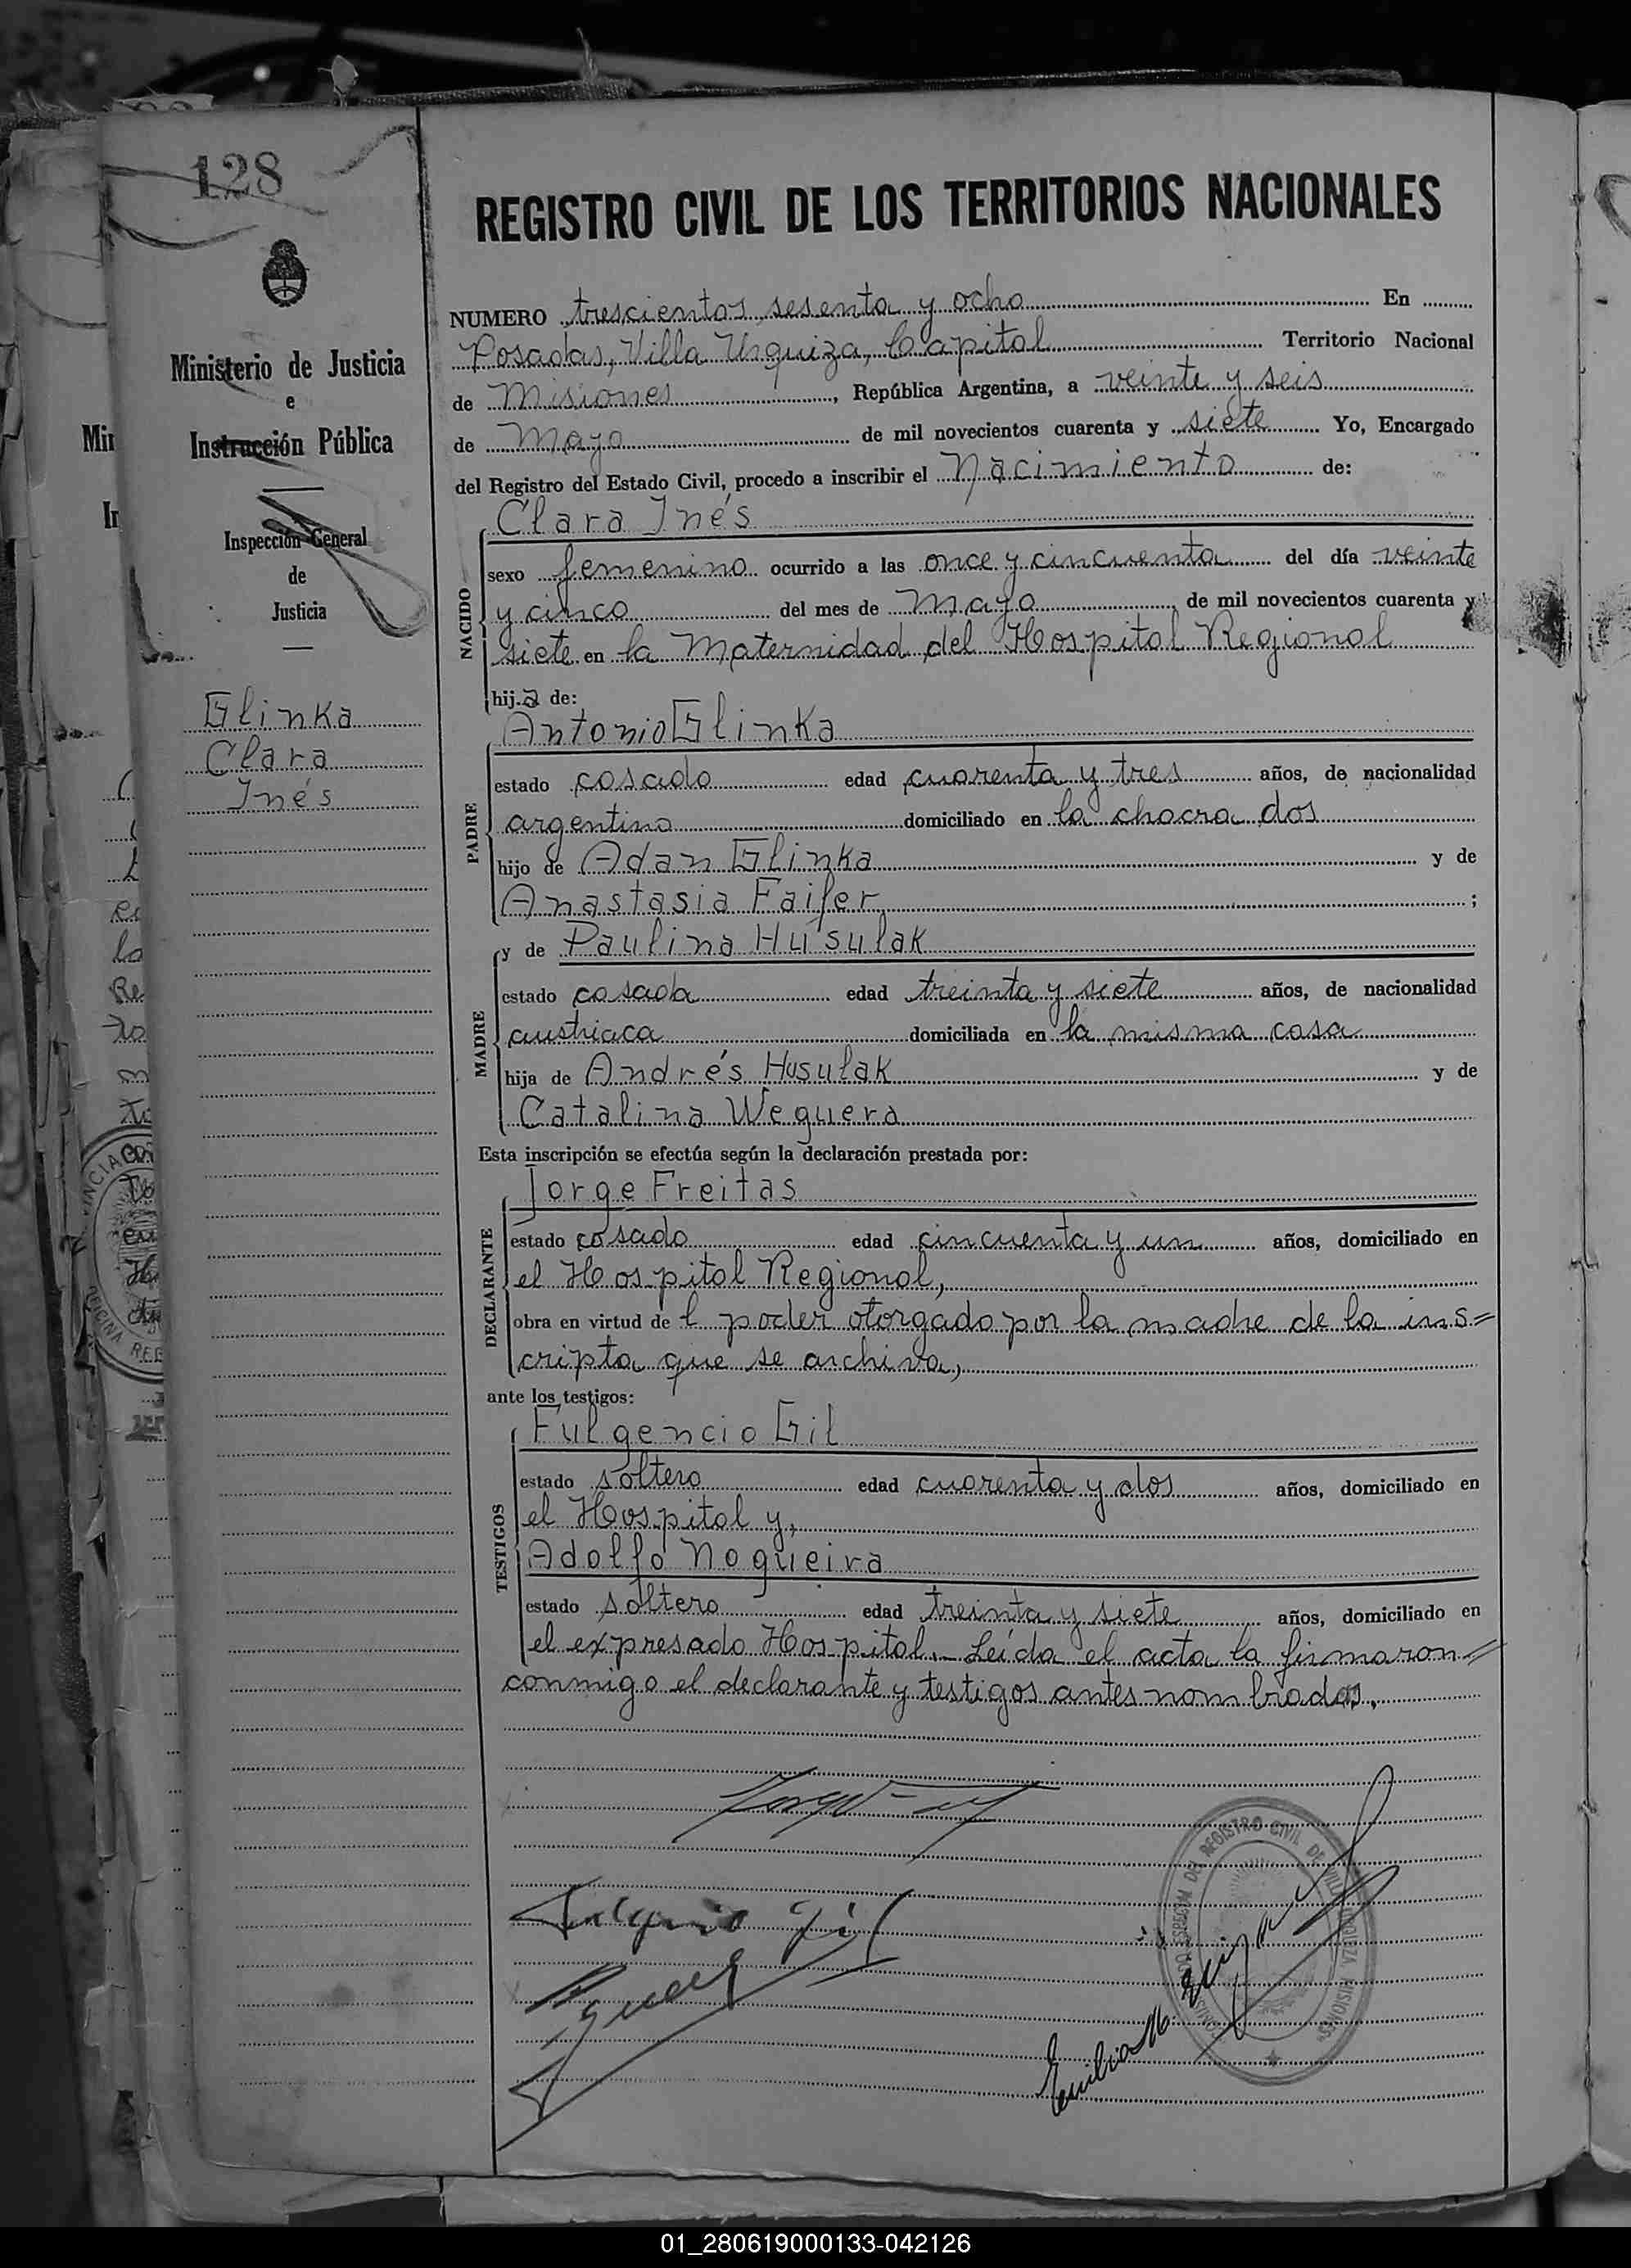 128
Ministerio de Justicia
e
Instrucción Pública
Inspección General
de
Justicia
Glinka
Clara
Inés
REGISTRO CIVIL DE LOS TERRITORIOS NACIONALES
NUMERO trescientos sesenta y ocho En
Posadas, Villa Urquiza, Capital Territorio Nacional
de Misiones, República Argentina, a veinte y seis
de Mayo de mil novecientos cuarenta y siete Yo, Encargado
del Registro del Estado Civil, procedo a inscribir el Nacimiento de:
Clara Inés
NACIDO
sexo femenino ocurrido a las once y cincuenta del día veinte
y cinco del mes de Mayo, de mil novecientos cuarenta y
siete en la Maternidad del Hospital Regional
hija de:
Antonio Glinka
PADRE
estado casado edad cuarenta y tres años, de nacionalidad
argentino domiciliado en la chacra dos
hijo de Adan Glinka y de
Anastasia Faifer ;
y de Paulina Husulak
MADRE
estado casada edad treinta y siete años, de nacionalidad
austriaca domiciliada en la misma casa
hija de Andrés Husulak y de
Catalina Weguera
Esta inscripción se efectúa según la declaración prestada por:
Jorge Freitas
DECLARANTE
estado casado edad cincuenta y un años, domiciliado en
el Hospital Regional,
obra en virtud de l poder otorgado por la madre de la ins=
cripta que se archiva,
ante los testigos:
Fulgencio Gil
TESTIGOS
estado soltero edad cuarenta y dos años, domiciliado en
el Hospital y,
Adolfo Nogueira
estado soltero edad treinta y siete años, domiciliado en
el expresado Hospital.- Leída el acta la firmaron=
conmigo el declarante y testigos antes nombrados.
Fulgencio Gil
Emilio M.
DEL REGISTRO CIVIL DE VILLA URQUIZA MISIONES
01_280619000133-042126